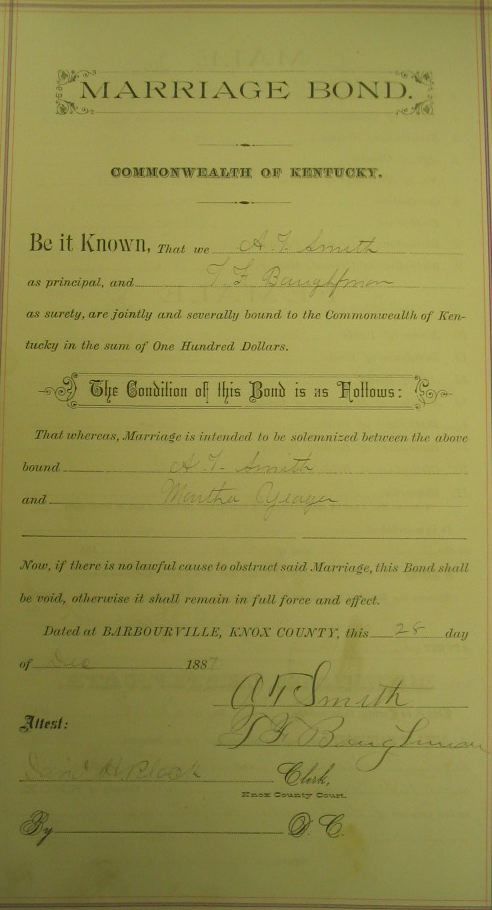 MARRIAGE BOND.
COMMONWEALTH OF KENTUCKY.
Be it Known, That we A. T. Smith
as principal, and T. F. Baughman
as surety, are jointly and severally bound to the Commonwealth of Ken-
tucky in the sum of One Hundred Dollars.
The Condition of this Bond is as Follows:
That whereas, Marriage is intended to be solemnized between the above
bound A. T. Smith
and Martha Yeager
Now, if there is no lawful cause to obstruct said Marriage, this Bond shall
be void, otherwise it shall remain in full force and effect.
Dated at BARBOURVILLE, KNOX COUNTY, this 28 day
of Dec 1887
A T Smith
T F Baughman
Attest:
Clerk,
Knox County Court.
By D. C.